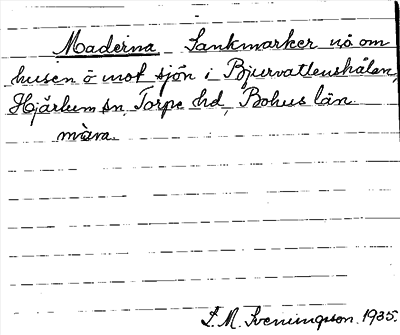 Maderna Sankmarker nö om
husen ö mot sjön i Bjurvattenskålen,
Hjärtum sn, Torpe hd, Bohus län.
màra.
S. M. Sveningson 1935.